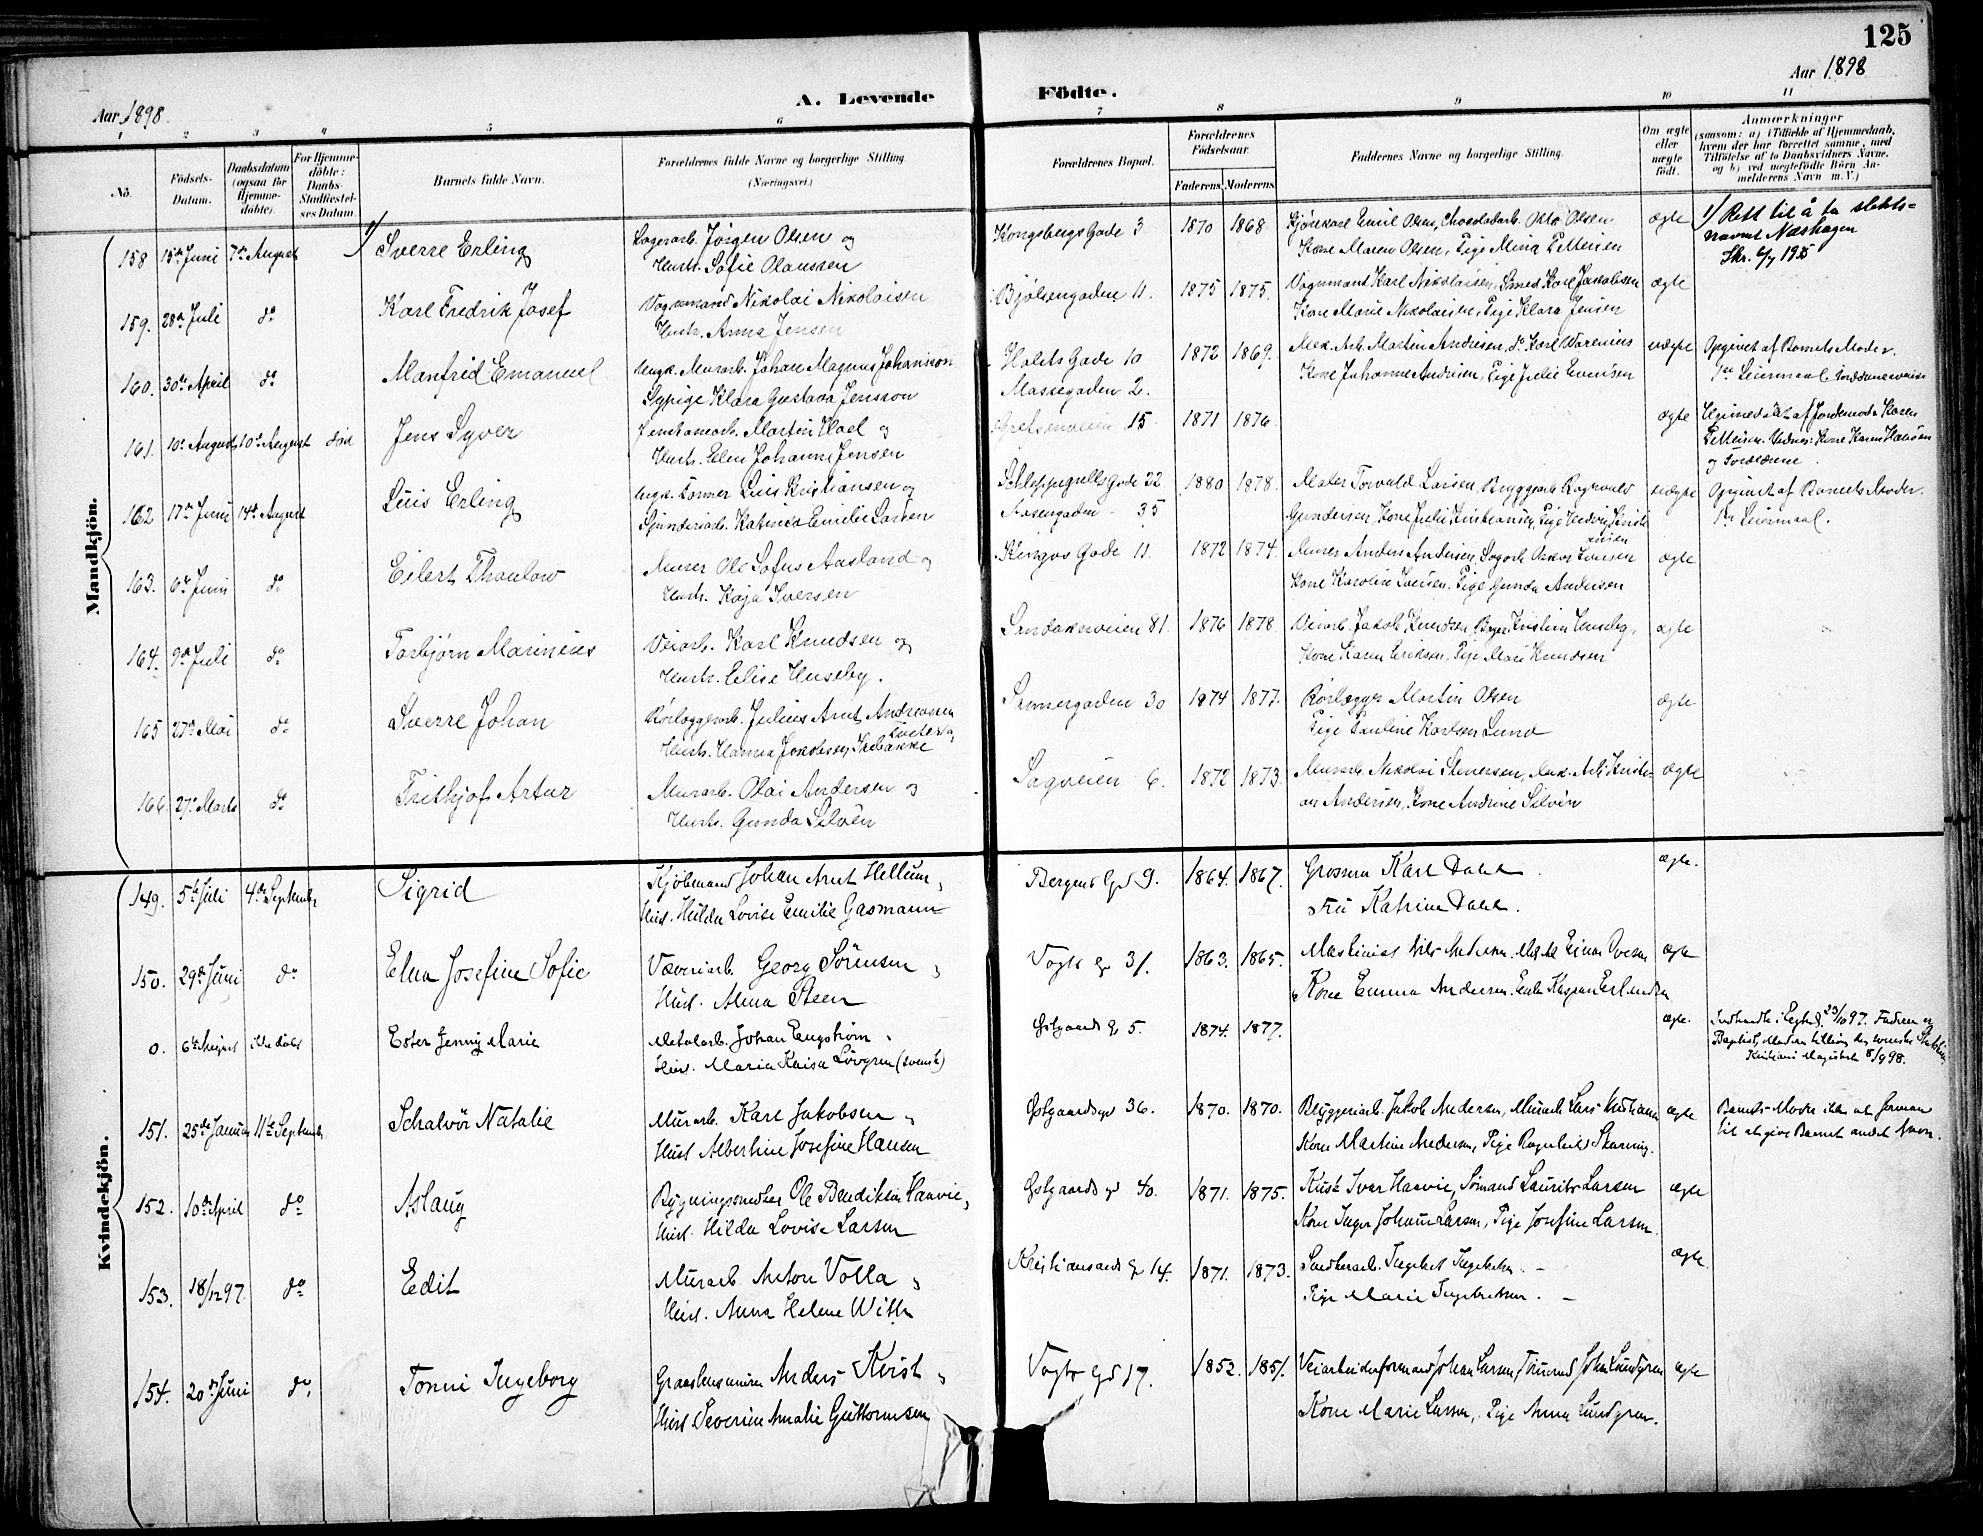 125
Aar 1898
Aar 1898.
A. Levende Födte.
1 2 3 4 5 6 7 8 9 10 11
No.
Födsels-Datum.
Daabsdatum (ogsaa for Hjemme-döbte).
For Hjemme-döbte: Daabs-Stadfæstel-ses Datum
Barnets fulde Navn.
Forældrenes fulde Navne og borgerlige Stilling
(Næringsvei.)
Forældrenes Bopæl.
Forældrenes Födselsaar.
Faderens. Moderens.
Faddernes Navne og borgerlige Stilling.
Om ægte eller uægte födt.
Anmærkninger
(saasom: a) i Tilfælde af Hjemmedaab, hvem der har forrettet samme, med Tilföielse af to Daabsvidners Navne. og b) ved uægtefödte Börn Anmelderens Navn m. V.)
Mandkjön.
158 15de Juni 7de August 1) Sverre Erling
Lagerarb. Jørgen Olsen og
Hustr. Sofie Olaussen
Kongsbergs Gade 3 1870 1868 Kjørekarl Emil Olsen, Chocoladarb. Otto Olsen
Kone Maren Olsen, Pige Mina Pettersen
ægte
1) Rett til å ta slekts-
navnet Næshagen
159. 28de Juli do Karl Fredrik Josef
Vognmand Nikolai Nikolaisen
Hustr. Anna Jensen
Bjölsengaden 11. 1875 1875. Vognmand Karl Nikolaisen, Smed Karl Jakobsen
Kone Marie Nikolaisen, Pige Klara Jensen
ægte
160. 30te April do Manfred Emanuel
Ungk. Murarb. Johan Magnus Johansson
Sypige Klara Gustava Jensson
Holsts Gade 10
Massegaden 2.
1872 1869. Mek. Arb. Martin Andresen, do Karl Warenius
Kone Johanne Andresen, Pige Julie Evensen
uægte
Opgivet af Barnets Moder.
161. 10de August 10de August død Jens Syver
Martin Hael og
Hustr. Elen Johanne Jensen
15 1871 1876
ægte
Hjemmedøbt af Jordemoder Karen
Pettersen. Vidner: Kone Karen Hansen
og Forældrene.
162 17de Juni 14de August Luis Erling
Ungk. Tømmer Luis Kristiansen og
Katinka Emilie Larsen
Schleppegrells Gade 32
35
1880 1878. Maler Torvald Larsen, Bryggearb. Ragnvald
Gundersen, Kone Julie Kristiansen, Pige Hedvig Kristi
ansen
uægte
Opgivet af Barnets Moder.
1ste Leiermaal.
163. 6te Juni do Eilert Thaulow
Murer Ole Sofus Aasland og
Hustr. Kaja Iversen
Kingos Gade 11. 1872 1874. Murer Anders Andersen, Sagarb. Oskar Iversen
Kone Karoline Iversen, Pige Gunda Andersen
ægte
164. 9de Juli do Torbjørn Marinius
Veiarb. Karl Knudsen og
Hustr. Elise Huseby.
Sandakerveien 81. 1876 1878. Veiarb. Jakob Knudsen, Bager Kristian Huseby,
Kone Karen Eriksen, Pige Marie Knudsen
ægte
165 27de Mai do Sverre Johan
Rørlæggerarb. Julius Arnt Andreassen
Hustr. Hanna Jakobsen
Sannergaden 30 1874 1877. Rørlægger Martin Olsen
Pige Pauline Karlsen Lund
ægte
166. 27de Marts do Frithjof Artur
Murarb. Olai Andersen og
Hustr. Gunda Silvén
Sagveien 6. 1872 1873. Murarb. Nikolai Stenersen, Mek. Arb. Kristi-
an Andersen, Kone Andrine Silvén
ægte
Kvindekjön.
149. 5te Juli 4de September Sigrid
Kjöbmand Johan Arnt Hellum,
Hust. Hilda Lovise Emilie Gasmann
Bergens Gd 9. 1864. 1867. Grosserer Karl Dahl.
Fru Katrine Dahl.
ægte.
150. 29de Juni do Elna Josefine Sofie
Væveriarb. Georg Sørensen,
Hust. Alma Steen
Vogts g 31. 1863. 1865. Maskinist Nils Andersen
Kone Emma Andersen
ægte
0. 6te August ikke døbt Ester Jenny Marie
Metalarb. Johan Engström,
Hust. Maria Kaisa Lövgren (svensk)
Østgaards g 5. 1874. 1877.
ægte.
151. 25de Januar 11te September Schalvör Natalie
Murarb. Karl Jakobsen,
Hust Albertine Josefine Hansen
Østgaardsgd 36. 1870. 1870. Bryggeriarb. Jakob Andersen, Murarb Lars Kristiansen
Kone Martine Andersen, Pige Ragnhild
ægte
Barnets Moder ikke at formaa
til at give Barnet andet Navn.
152. 10de April do Aslaug
Bygningssnedker Ole Bendiksen Haavie,
Hust. Hilda Lovise Larsen
Østgaards gd 40. 1871. 1875. Kusk Ivar Haavie, Sømand Laurits Larsen
Kone Inger Johanne Larsen, Pige Josefine Larsen.
ægte
153. 18/12 97. do Edit
Murarb Anton Volla,
Hust. Anna Helene With
Kristiansands g 14. 1871. 1873.
Pige Marie Ingebretsen.
ægte
154. 20de Juni do. Tonni Ingeborg
Anders Kvist,
Hust. Severine Amalie Guttormsen
Vogts gd 17. 1852. 1851. Veiarbeiderformand Johan Larsen, John Lundgren
Kone Marie Larsen, Pige Anna Lundgren.
ægte